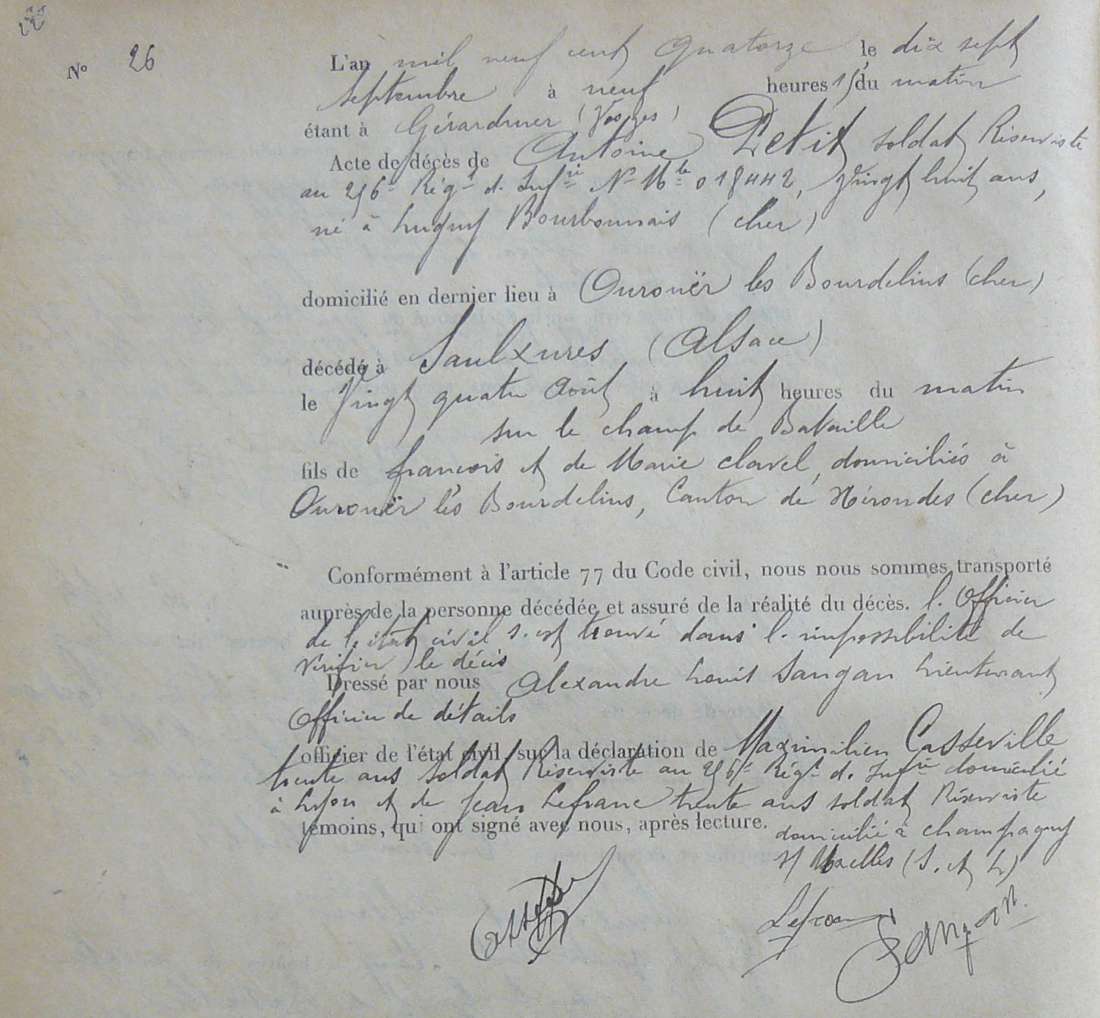 22
N° 26
L'an mil neuf cent quatorze le dix sept
septembre à neuf heures 1/ du matin
étant à Gérardmer (Vosges)
Acte de décès de Antoine Petit soldat Réserviste
au 256e Régt d. Infrie N° Mle 018442, Vingt huit ans,
né à Lugny Bourbonnais (cher)
domicilié en dernier lieu à Ourouër les Bourdelins (cher)
décédé à Saulxures (Alsace)
le Vingt quatre Août à huit heures du matin
sur le champ de Bataille
fils de françois et de Marie clavel, domiciliés à
Ourouër les Bourdelins, Canton de Nérondes (cher)
Conformément à l'article 77 du Code civil, nous nous sommes transporté
auprès de la personne décédée et assuré de la réalité du décès. l. Officier
de l. état civil s. est trouvé dans l. impossibilité de
Vérifier le décès
Dressé par nous Alexandre Louis Sangan Lieutenant
Officier de détails
officier de l'état civil, sur la déclaration de Maximilien Casseville
trente ans soldat Réserviste au 256e Régt d. Infrie domicilié
à Lyon et de Jean Lefranc trente ans soldat Réserviste
témoins, qui ont signé avec nous, après lecture. domicilié à champagny
(S. et L)
Lefranc
Sangan